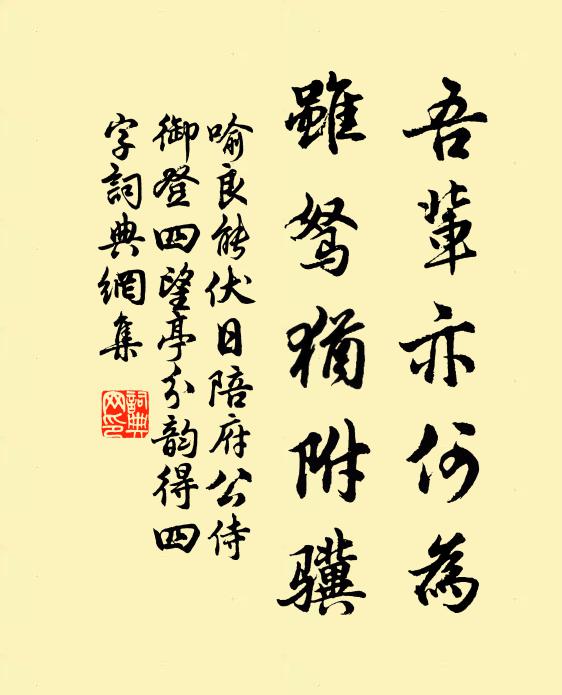 吾輩亦何為
雖駑猶附驥
喻良能伏日陪府公侍
御登四望亭分韵得四
字詞典網集
詞典
网印